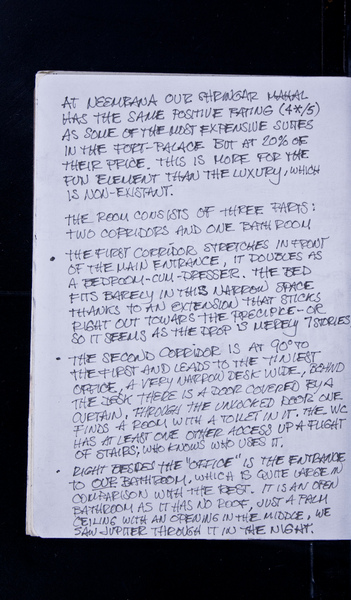 AT NEEMRANA OUR SHRINGAR MAHAL
HAS THE SAME POSITIVE RATING (4*/5)
AS SOME OF THE MOST EXPENSIVE SUITES
IN THE FORT-PALACE BUT AT 20% OF
THEIR PRICE. THIS IS MORE FOR THE
FUN ELEMENT THAN THE LUXURY, WHICH
IS NON-EXISTANT.
THE ROOM CONSISTS OF THREE PARTS:
TWO CORRIDORS AND ONE BATHROOM
• THE FIRST CORRIDOR STRETCHES IN FRONT
OF THE MAIN ENTRANCE, IT DOUBLES AS
A BEDROOM-CUM-DRESSER. THE BED
FITS BARELY IN THIS NARROW SPACE
THANKS TO AN EXTENSION THAT STICKS
RIGHT OUT TOWARDS THE PRECIPICE-OR
SO IT SEEMS AS THE DROP IS MERELY 7 STORIES
• THE SECOND CORRIDOR IS AT 90° TO
THE FIRST AND LEADS TO THE TINIEST
OFFICE, A VERY NARROW DESK WIDE, BEHIND
THE DESK THERE IS A DOOR COVERED BY A
CURTAIN, THROUGH THE UNLOCKED DOOR ONE
FINDS A ROOM WITH A TOILET IN IT. THE WC
HAS AT LEAST ONE OTHER ACCESS UP A FLIGHT
OF STAIRS, WHO KNOWS WHO USES IT.
• RIGHT BESIDES THE "OFFICE" IS THE ENTRANCE
TO OUR BATHROOM, WHICH IS QUITE LARGE IN
COMPARISON WITH THE REST. IT IS AN OPEN
BATHROOM AS IT HAS NO ROOF, JUST A PALM
CEILING WITH AN OPENING IN THE MIDDLE, WE
SAW JUPITER THROUGH IT IN THE NIGHT.